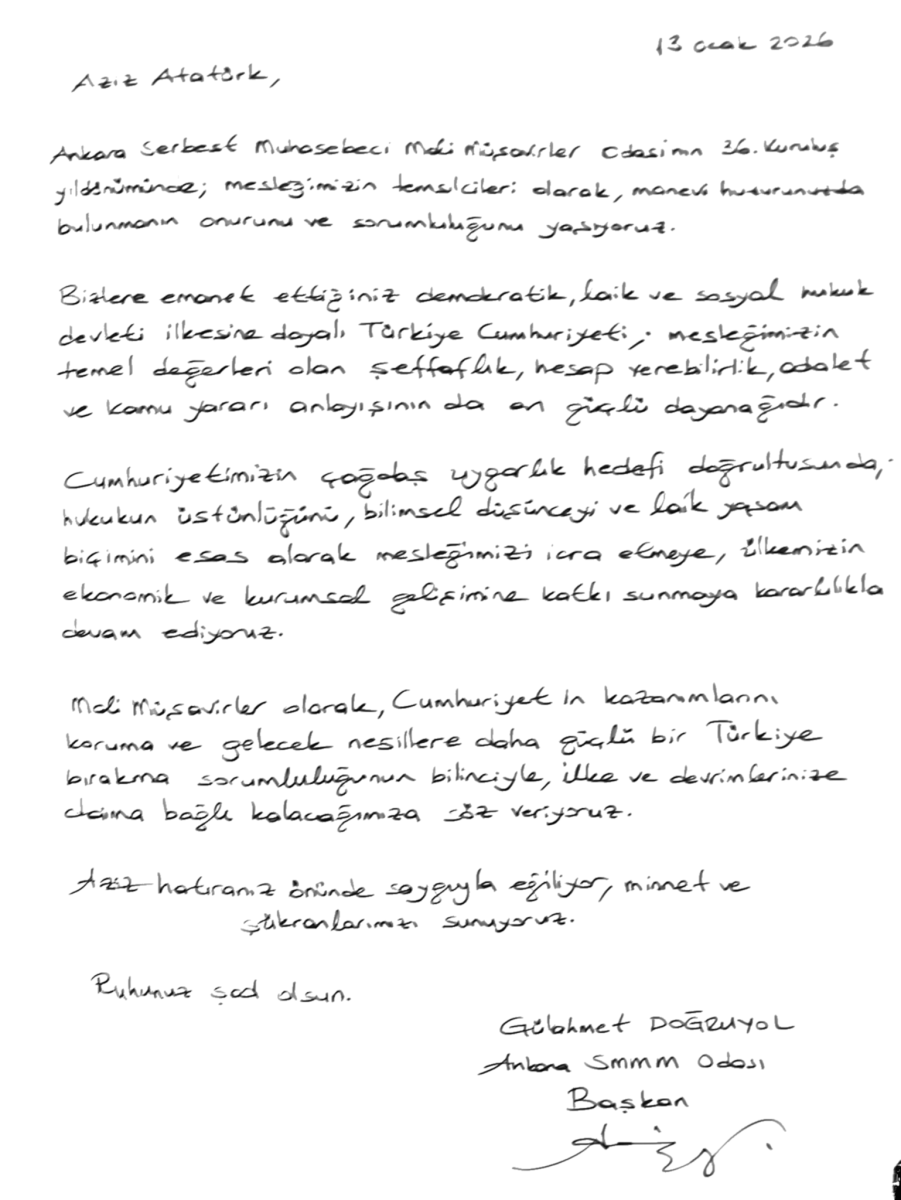 13 Ocak 2026
Aziz Atatürk,
Ankara Serbest Muhasebeci Mali Müşavirler Odasının 36. Kuruluş
yıldönümünde; mesleğimizin temsilcileri olarak, manevi huzurunuzda
bulunmanın onurunu ve sorumluluğunu yaşıyoruz.
Bizlere emanet ettiğiniz demokratik, laik ve sosyal hukuk
devleti ilkesine dayalı Türkiye Cumhuriyeti; mesleğimizin
temel değerleri olan şeffaflık, hesap verebilirlik, adalet
ve kamu yararı anlayışının da en güçlü dayanağıdır.
Cumhuriyetimizin çağdaş uygarlık hedefi doğrultusunda;
hukukun üstünlüğünü, bilimsel düşünceyi ve laik yaşam
biçimini esas alarak mesleğimizi icra etmeye, ülkemizin
ekonomik ve kurumsal gelişimine katkı sunmaya kararlılıkla
devam ediyoruz.
Mali Müşavirler olarak, Cumhuriyet'in kazanımlarını
koruma ve gelecek nesillere daha güçlü bir Türkiye
bırakma sorumluluğunun bilinciyle, ilke ve devrimlerinize
daima bağlı kalacağımıza söz veriyoruz.
Aziz hatıranız önünde saygıyla eğiliyor, minnet ve
şükranlarımızı sunuyoruz.
Ruhunuz şad olsun.
Gülahmet DOĞRUYOL
Ankara SMMM Odası
Başkan